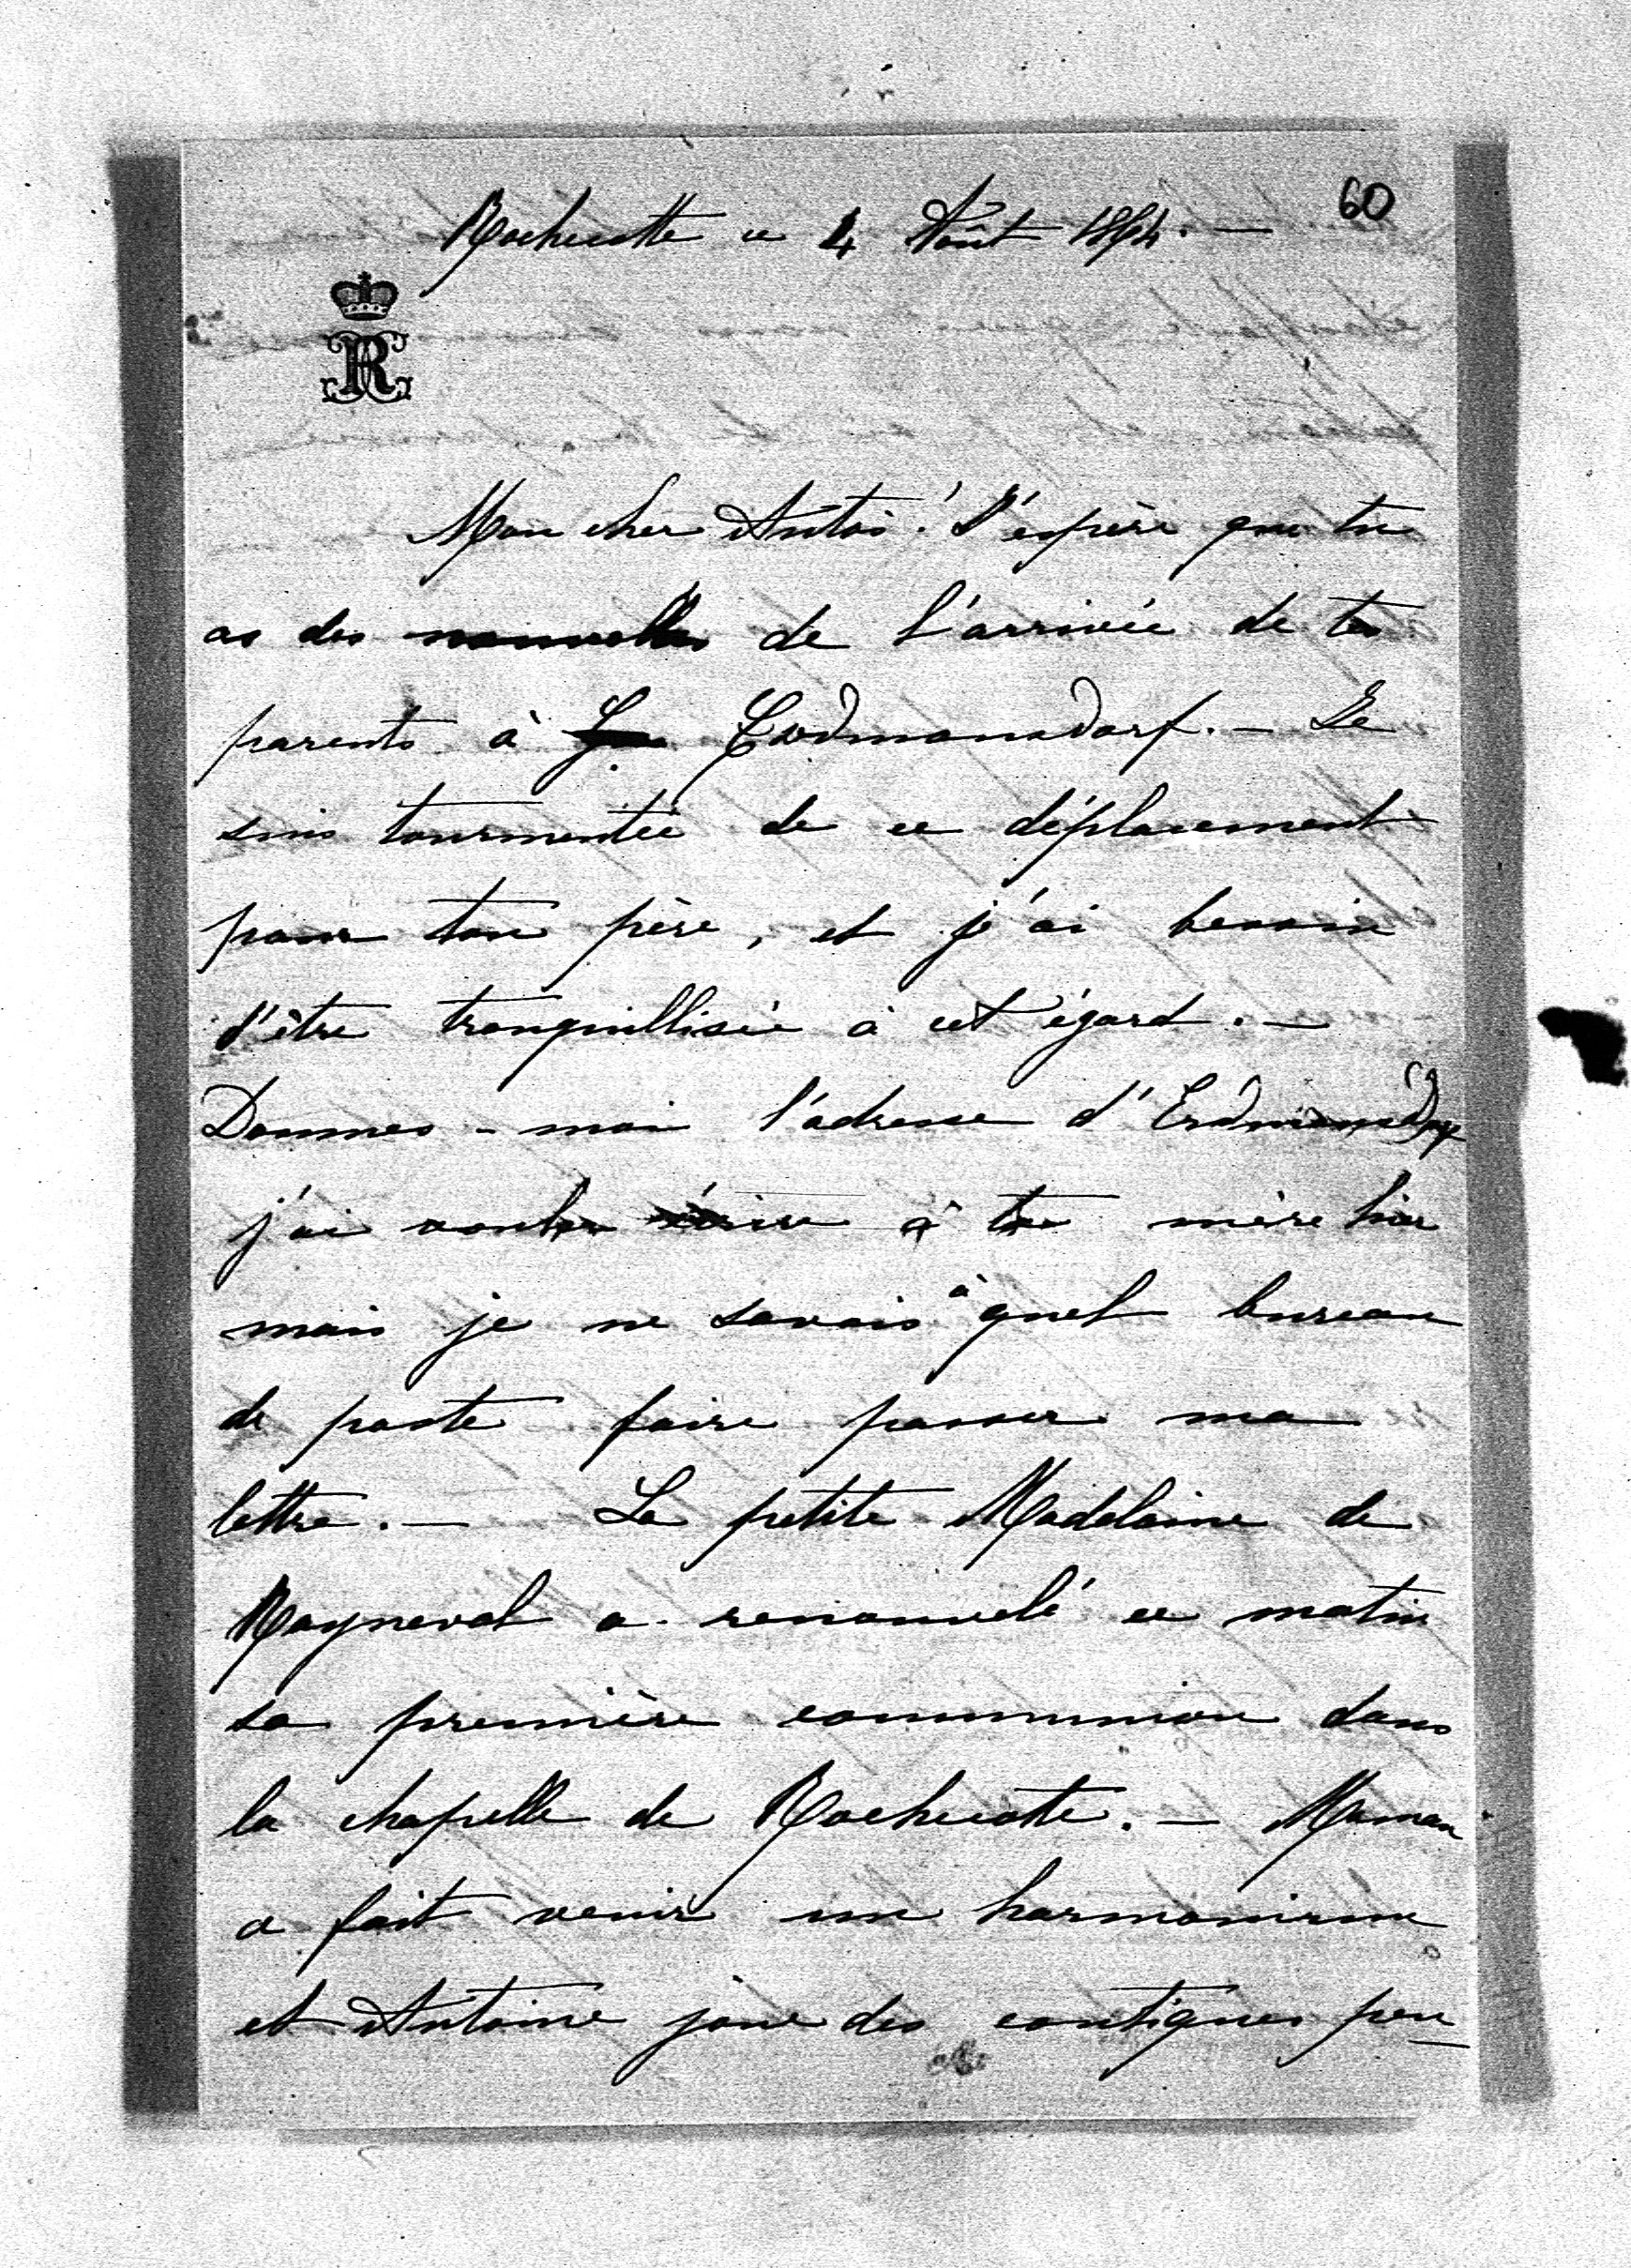 60
Rochecotte ce 4 Août
R
Mon cher Antoi! J'espère que tu
as des nouvelles de l'arrivée de tes
parents à Erdmansdorf. - Je
suis tourmentée de ce déplacement
pour ton père, et j'ai besoin
d'être tranquillisée à cet égard. -
Donnes-moi l'adresse d'Erdmansdorf
j'ai voulu écrire à ta mère hier
mais je ne savais à quel bureau
de poste faire passer ma
lettre. - La petite Madelaine de
Rayneval a renouvelé ce matin
sa première communion dans
la chapelle de Rochecotte. - Maman
a fait venir un harmonium
et Antoine joue des cantiques pen-